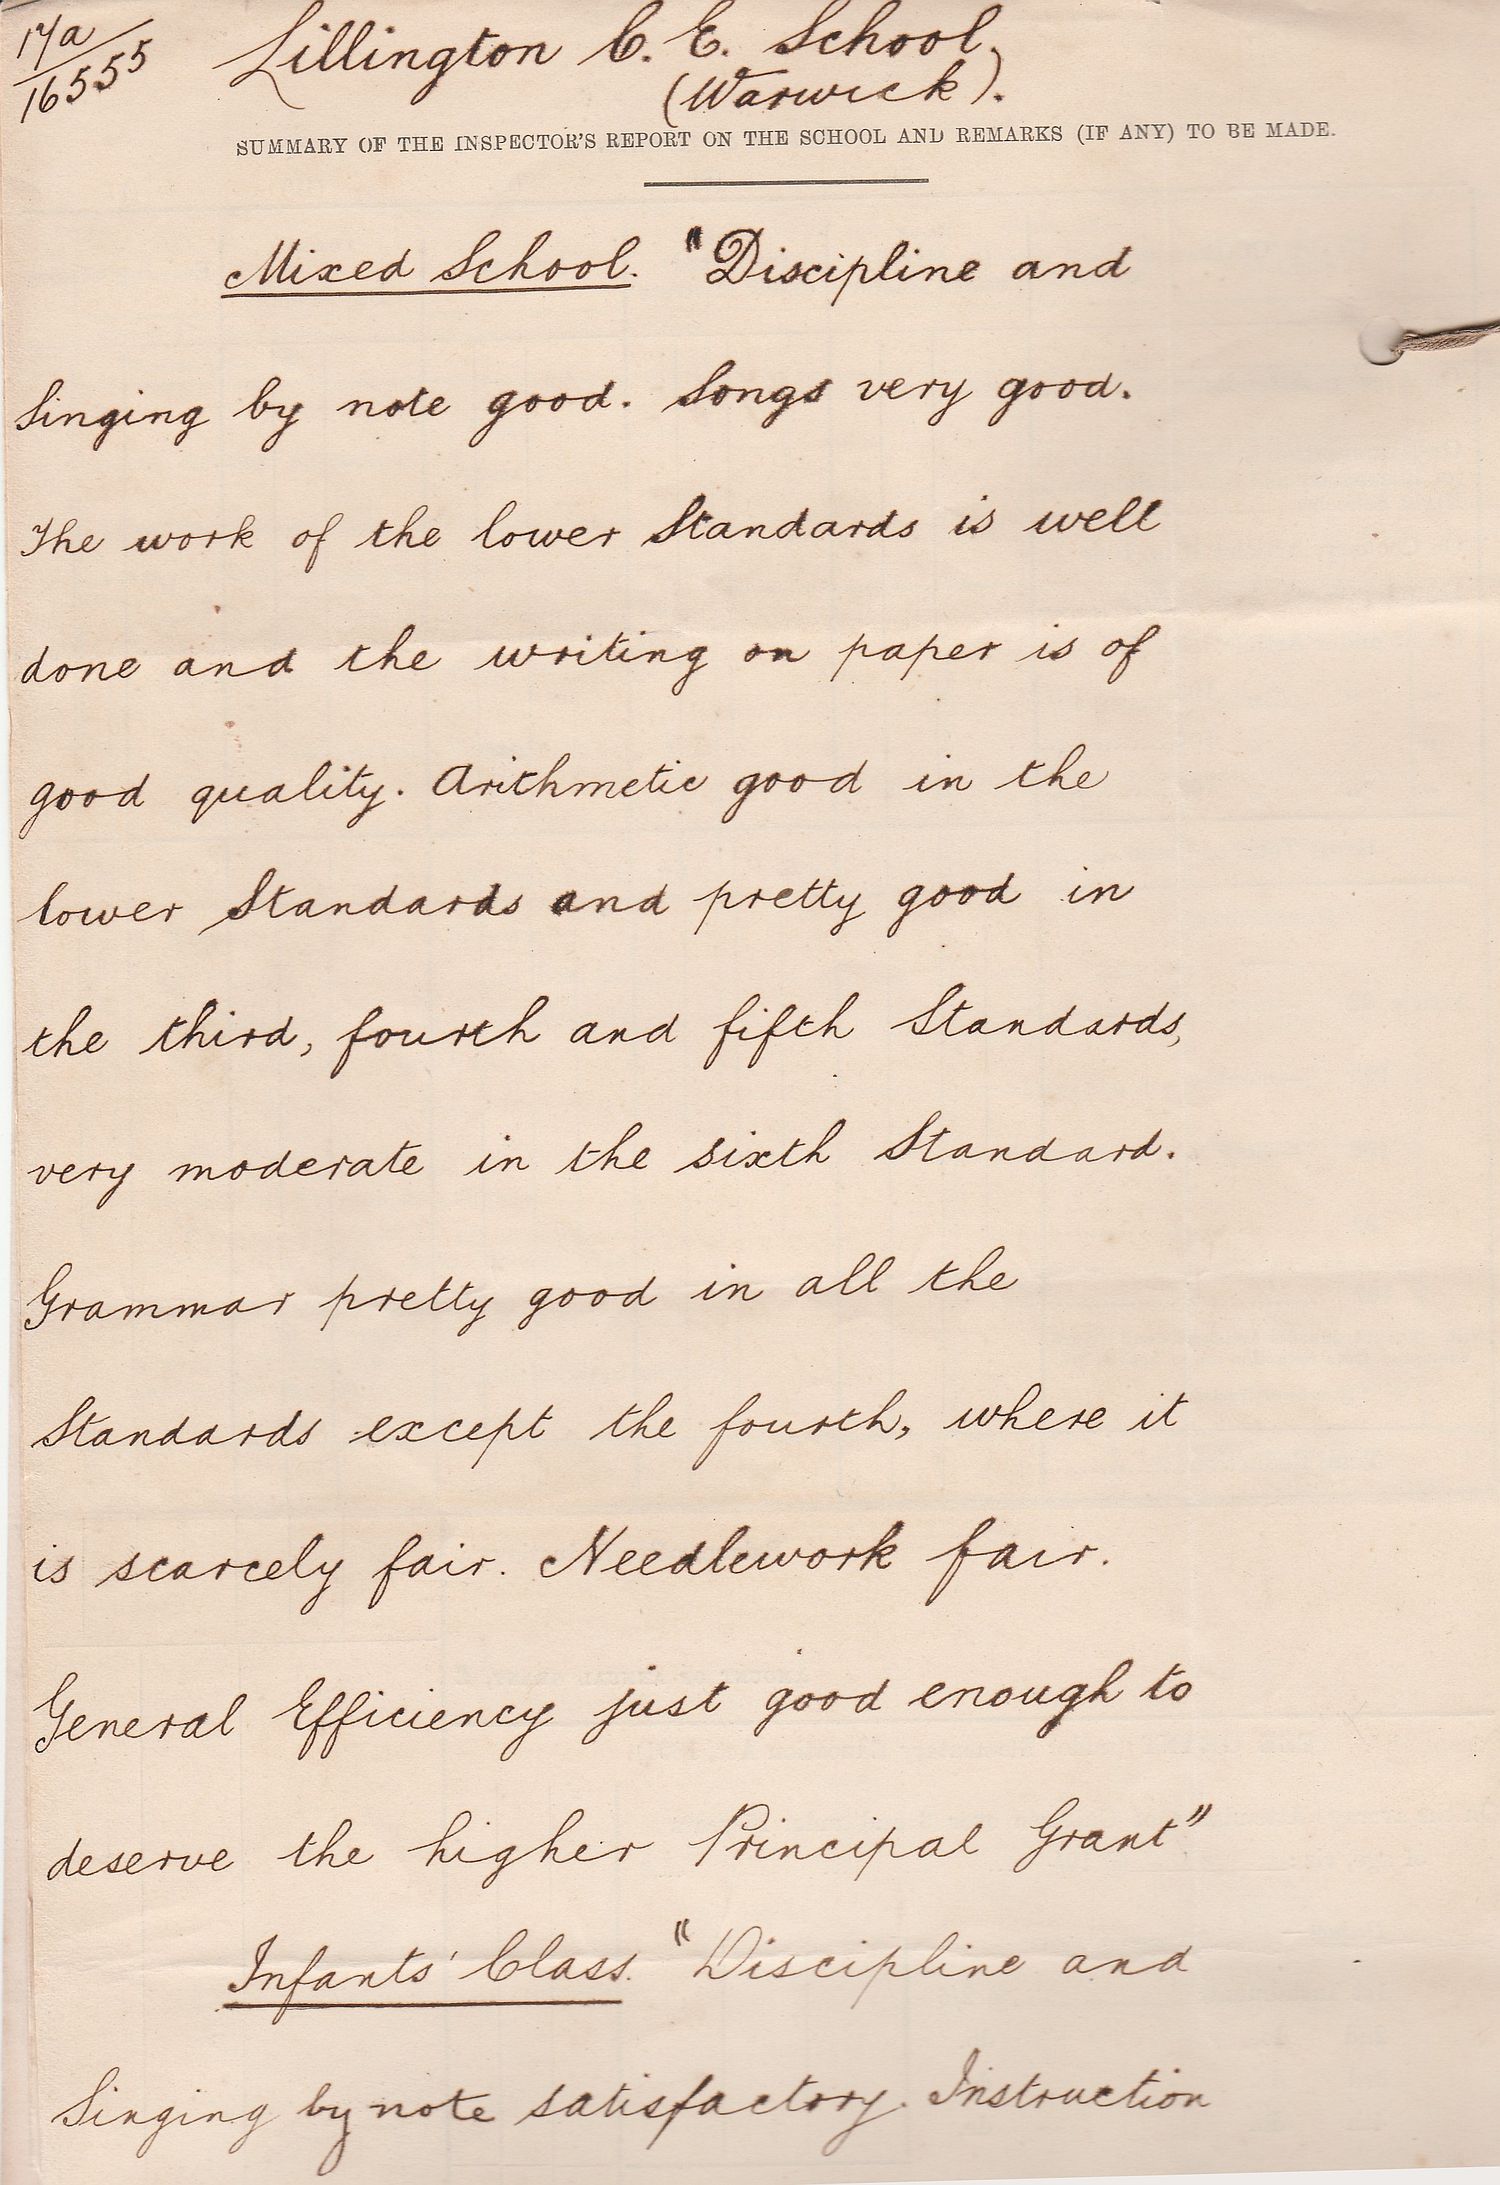 17a/16555
Lillington C. E. School.
(Warwick).
SUMMARY OF THE INSPECTOR'S REPORT ON THE SCHOOL AND REMARKS (IF ANY) TO BE MADE.
Mixed School. "Discipline and
Singing by note good. Songs very good.
The work of the lower Standards is well
done and the writing on paper is of
good quality. Arithmetic good in the
lower Standards and pretty good in
the third, fourth and fifth Standards,
very moderate in the sixth Standard.
Grammar pretty good in all the
Standards except the fourth, where it
is scarcely fair. Needlework fair.
General Efficiency just good enough to
deserve the higher Principal Grant"
Infants' Class. "Discipline and
Singing by note satisfactory. Instruction